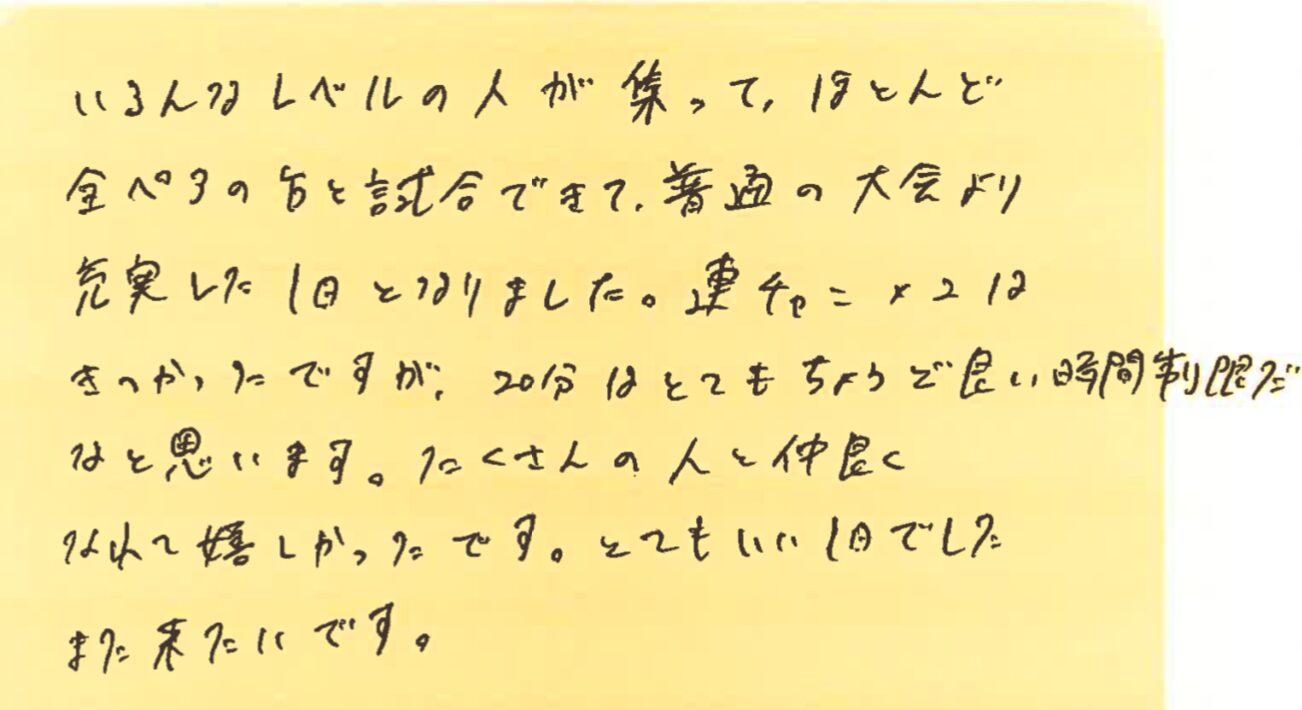 いろんなレベルの人が集って、ほとんど
全ペアの方と試合できて、普通の大会より
充実した1日となりました。連チャン×2は
きつかったですが、20分はとてもちょうど良い時間制限だ
なと思います。たくさんの人と仲良く
なれて嬉しかったです。とてもいい1日でした
また来たいです。